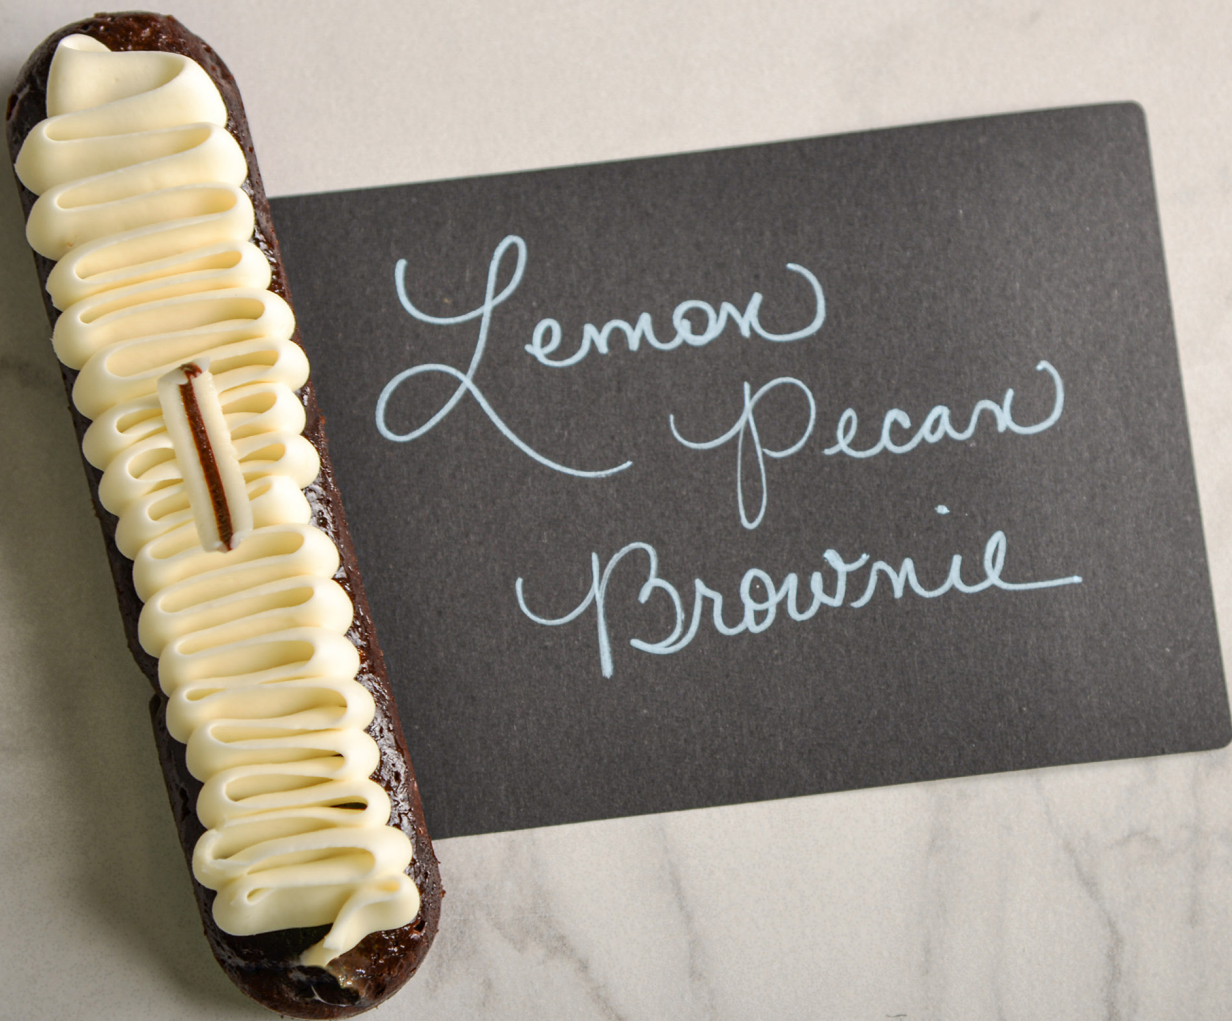 Lemon
Pecan
Brownie